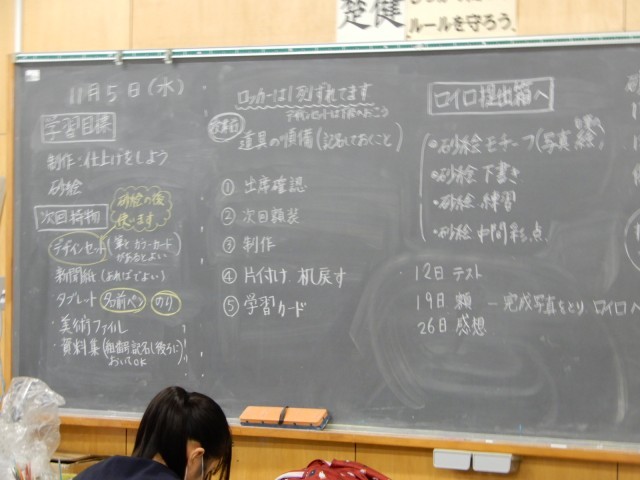 楚健
ルールを守ろう。
11月5日(水)
学習目標
制作:仕上げをしよう
砂絵
次回持物
砂絵の後
使います
デザインセット(筆と カラーカード
があるとよい
新聞紙(あればでよい)
タブレット 名前ペン のり
・美術ファイル
・資料集(組番号記名し後ろに
おいてOK
ロッカーは1列ずれてます
デザインセットは下段のおこう
道具の準備(記名しておくこと)
① 出席確認
② 次回額装
③ 制作
④ 片付け 机戻す
⑤ 学習カード
ロイロ提出箱へ
・砂絵 モチーフ(写真 絵)
・砂絵 下書き
・砂絵 練習
・砂絵 中間彩点
・12日 テスト
19日 額 ー完成写真をとり ロイロへ
26日 感想